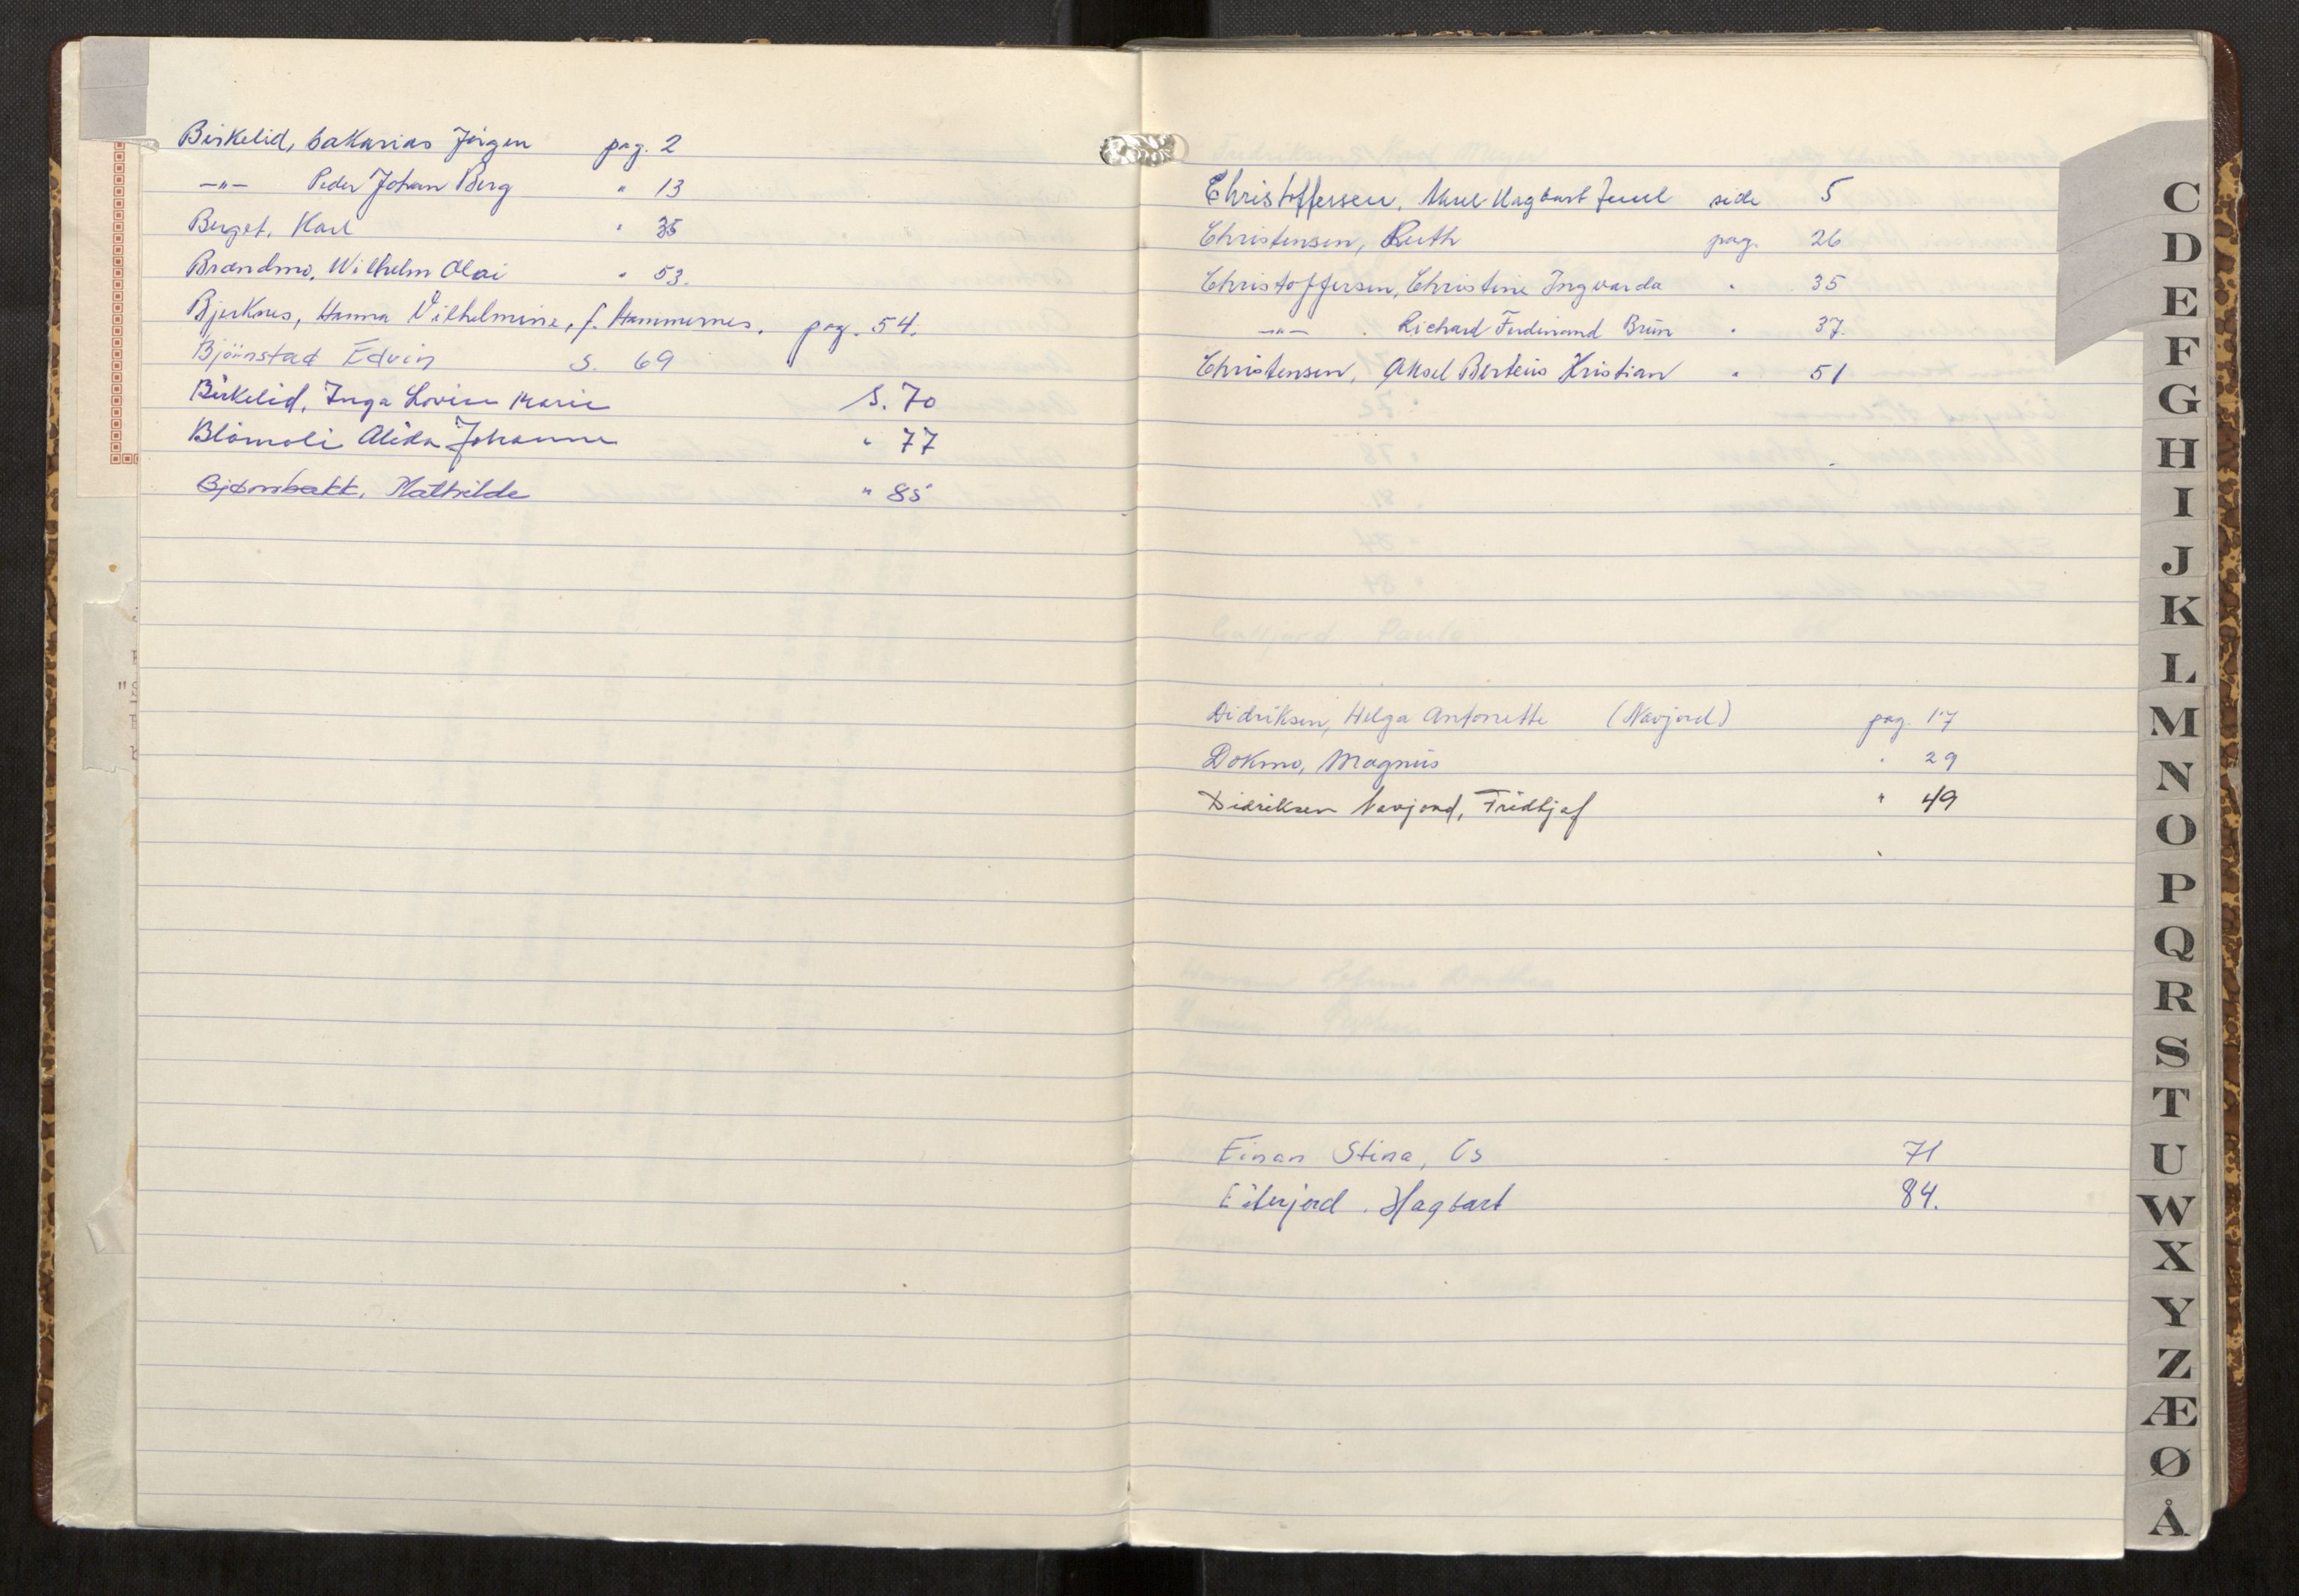 Birkelid, Sakarias Jörgen pag. 2
—"— Peder Johan Berg " 13
Berget, Karl " 35
Brandmo, Wilhelm Olai " 53.
Bjerknes, Hanna Vilhelmine, f. Hammernes. pag. 54.
Björnstad Edvin S. 69
Birkelid, Inga Lovise Marie S. 70
Blåmoli Alida Johanne " 77
Bjørnbakk, Mathilde " 85
Christoffersen, Aksel Hagbart Juul side 5
Christensen, Ruth pag. 26
Christoffersen, Christine Ingvarda " 35
—"— Richard Ferdinand Brun " 37.
Christensen, Aksel Berteus Kristian " 51
Didriksen, Helga Antonette (Navjord) pag. 17
Dokmo, Magnus " 29
Didriksen Navjord, Fridtjof " 49
Einan Stina, Os 71
Eiterjord. Hagbart 84.
C
D
E
F
G
H
I
J
K
L
M
N
O
P
Q
R
S
T
U
W
X
Y
Z
Æ
Ø
Å